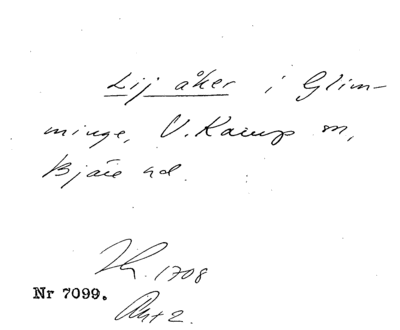 Lij åker i Glim-
minge, V. Karup sn,
Bjäre hd.
Lh. 1708
Nr 7099.
Akt 2.